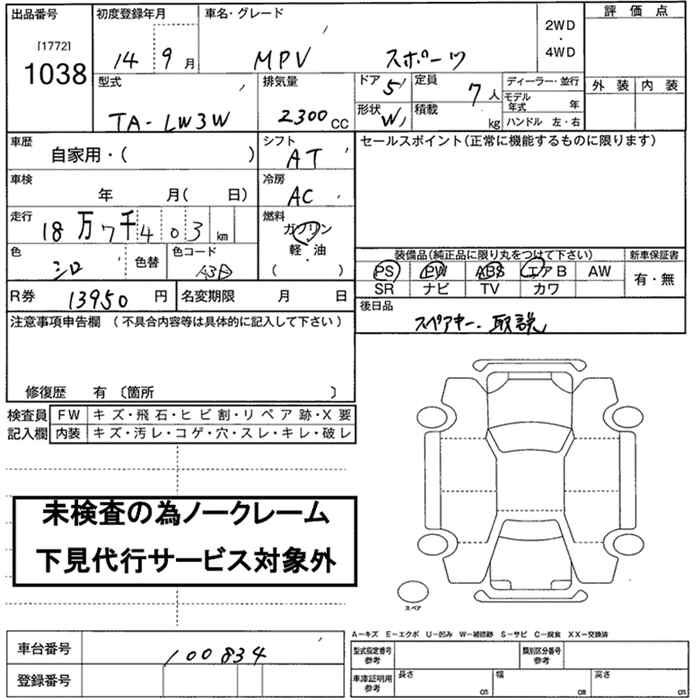 出品番号 初度登録年月 車名・グレード 2WD・4WD 評価点
[1772]
1038 14 9月 MPV スポーツ
型式 排気量 ドア 5 定員 7人 ディーラー・並行 外装 内装
TA-LW3W 2300CC 形状 W 積載 kg モデル年式 年
ハンドル 左・右
車歴 自家用・( ) シフト AT セールスポイント(正常に機能するものに限ります)
車検 年 月( 日) 冷房 AC
走行 18万7千403km 燃料 ガソリン
軽・油
( )
色 シロ 色替 色コード A3D 装備品(純正品に限り丸をつけて下さい) 新車保証書
PS PW ABS エアB AW 有・無
SR ナビ TV カワ
R券 13950円 名変期限 月 日 後日品
スペアキー・取説
注意事項申告欄 (不具合内容等は具体的に記入して下さい)
修復歴 有 〔箇所 〕
検査員記入欄 FW キズ・飛石・ヒビ割・リペア跡・X要
内装 キズ・汚レ・コゲ・穴・スレ・キレ・破レ
未検査の為ノークレーム
下見代行サービス対象外
スペア
A-キズ E-エクボ U-凹み W-補修跡 S-サビ C-腐食 XX-交換済
車台番号 100834 型式指定番号 参考 類別区分番号 参考
登録番号 車庫証明用 参考 長さ cm 幅 cm 高さ cm